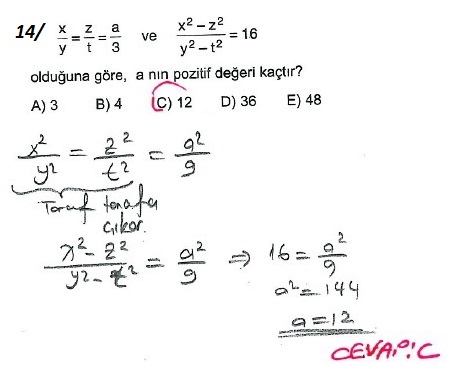 14/ x/y = z/t = a/3 ve (x² – z²)/(y² – t²) = 16
olduğuna göre, a nın pozitif değeri kaçtır?
A) 3 B) 4 C) 12 D) 36 E) 48
x²/y² = z²/t² = a²/9
Taraf tarafa
çıkar.
(x² - z²)/(y² - t²) = a²/9 ⇒ 16 = a²/9
a² = 144
a = 12
CEVAP: C